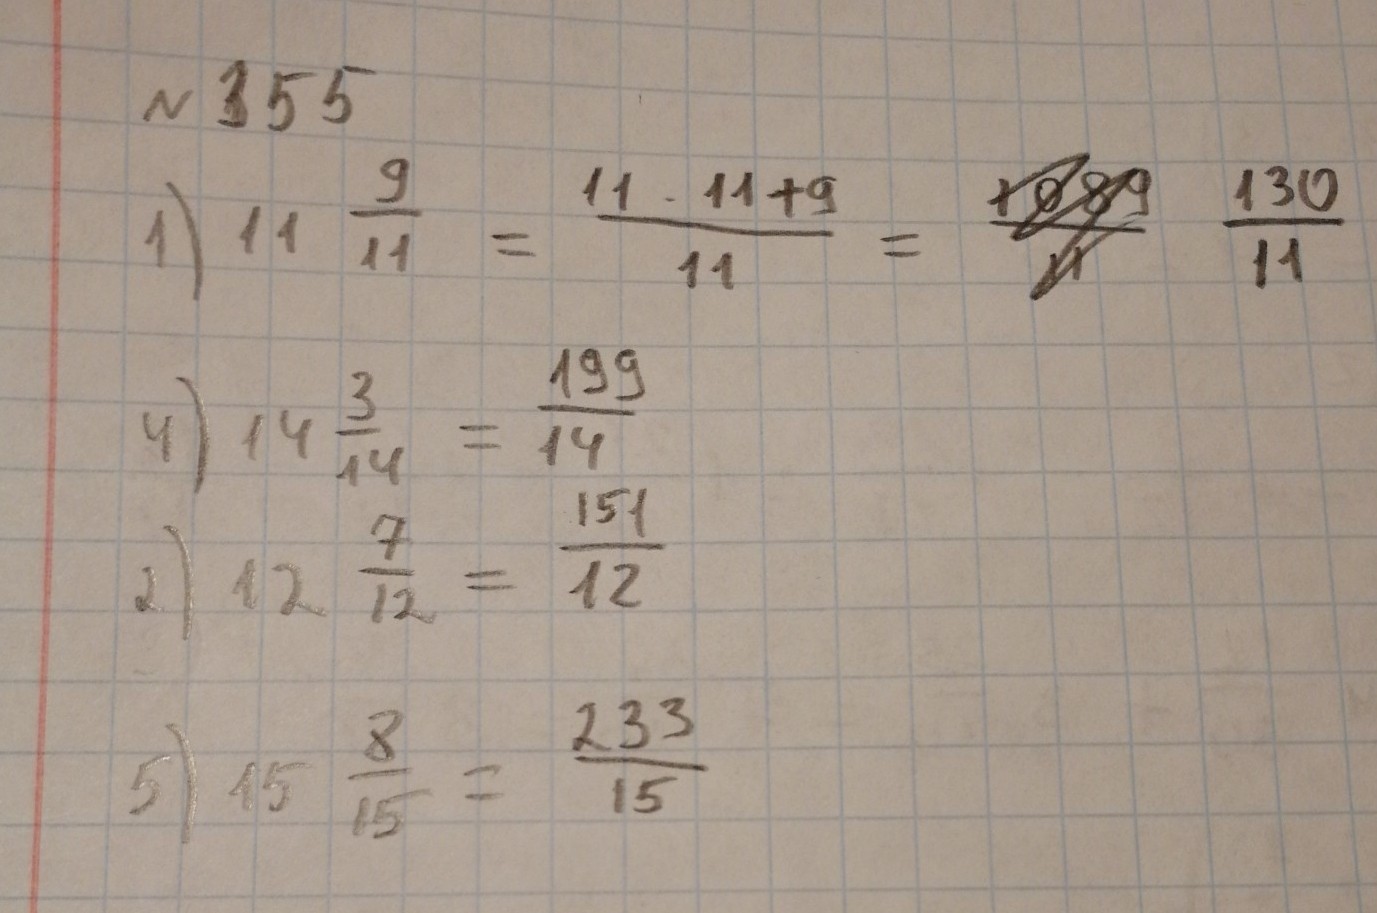 N 355
1) 11 9/11 = 11 · 11+9/11 = 1089/11 130/11
4) 14 3/14 = 199/14
2) 12 7/12 = 151/12
5) 15 8/15 = 233/15